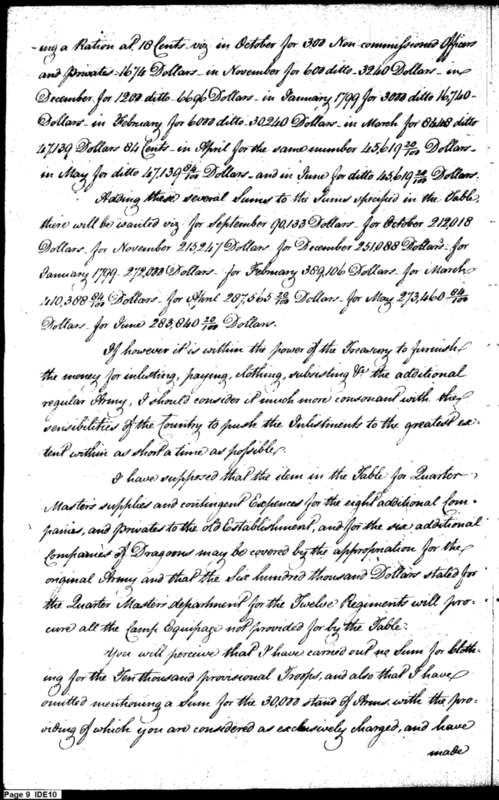 ing a Ration at 18 Cents viz in October for 300 Non-commissioned Officers
and Privates - 1674 Dollars - in November for 600 ditto - 3240 Dollars - in
December for 1200 ditto - 6696 Dollars - in January 1799 for 3000 ditto 16,740 -
Dollars - in February for 6000 ditto - 30,240 Dollars - in March for 8448 ditto
47,139 Dollars 84 Cents - in April for the same number 45,619 20/100 Dollars -
in May for ditto 47,139 84/100 Dollars - and in June for ditto 45,619 20/100 Dollars.
Adding these several Sums to the Sums specified in the Table,
there will be wanted viz for September 90,133 Dollars - for October 212,018
Dollars - for November 215,247 Dollars - for December 251,088 Dollars - for
January 1799 - 272,000 Dollars - for February 389,106 Dollars - for March
410,388 84/100 Dollars - for April 287,565 20/100 Dollars - for May 273,460 84/100
Dollars - for June 283,840 20/100 Dollars.
If however it is within the power of the Treasury to furnish
the money for inlisting, paying, clothing, subsisting &c. the additional
regular Army, I should consider it much more consonant with the
sensibilities of the Country to push the Inlistments to the greatest ex-
tent within as short a time as possible.
I have supposed that the item in the Table for Quarter
Masters supplies and contingent Expences for the eight additional Com-
panies, and Privates to the old Establishment, and for the six additional
Companies of Dragoons may be covered by the appropriation for the
original Army and that the Six hundred thousand Dollars stated for
the Quarter Masters department for the Twelve Regiments will pro-
cure all the Camp Equipage not provided for by the Table.
You will perceive that I have carried out no Sum for Cloth-
ing for the Ten thousand provisional Troops, and also that I have
omitted mentioning a Sum for the 30,000 stand of Arms, with the pro-
viding of which you are considered as exclusively charged, and have
made
Page 9 IDE10